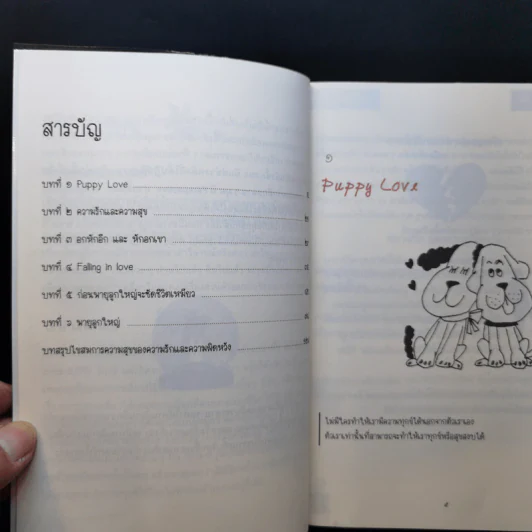 สารบัญ
บทที่ ๑ Puppy Love
บทที่ ๒ ความรักและความสุข
บทที่ ๓ อกหักอีก และ หักอกเขา
บทที่ ๔ Falling in love
บทที่ ๕ ก่อนพายุลูกใหญ่จะซัดชีวิตเหมียว
บทที่ ๖ พายุลูกใหญ่
บทสรุปไขสมการความสุขของความรักและความผิดหวัง
๑
Puppy Love
ไม่มีใครทำให้เรามีความทุกข์ได้นอกจากตัวเราเอง
ตัวเราเท่านั้นที่สามารถจะทำให้เราทุกข์หรือสุขสงบได้